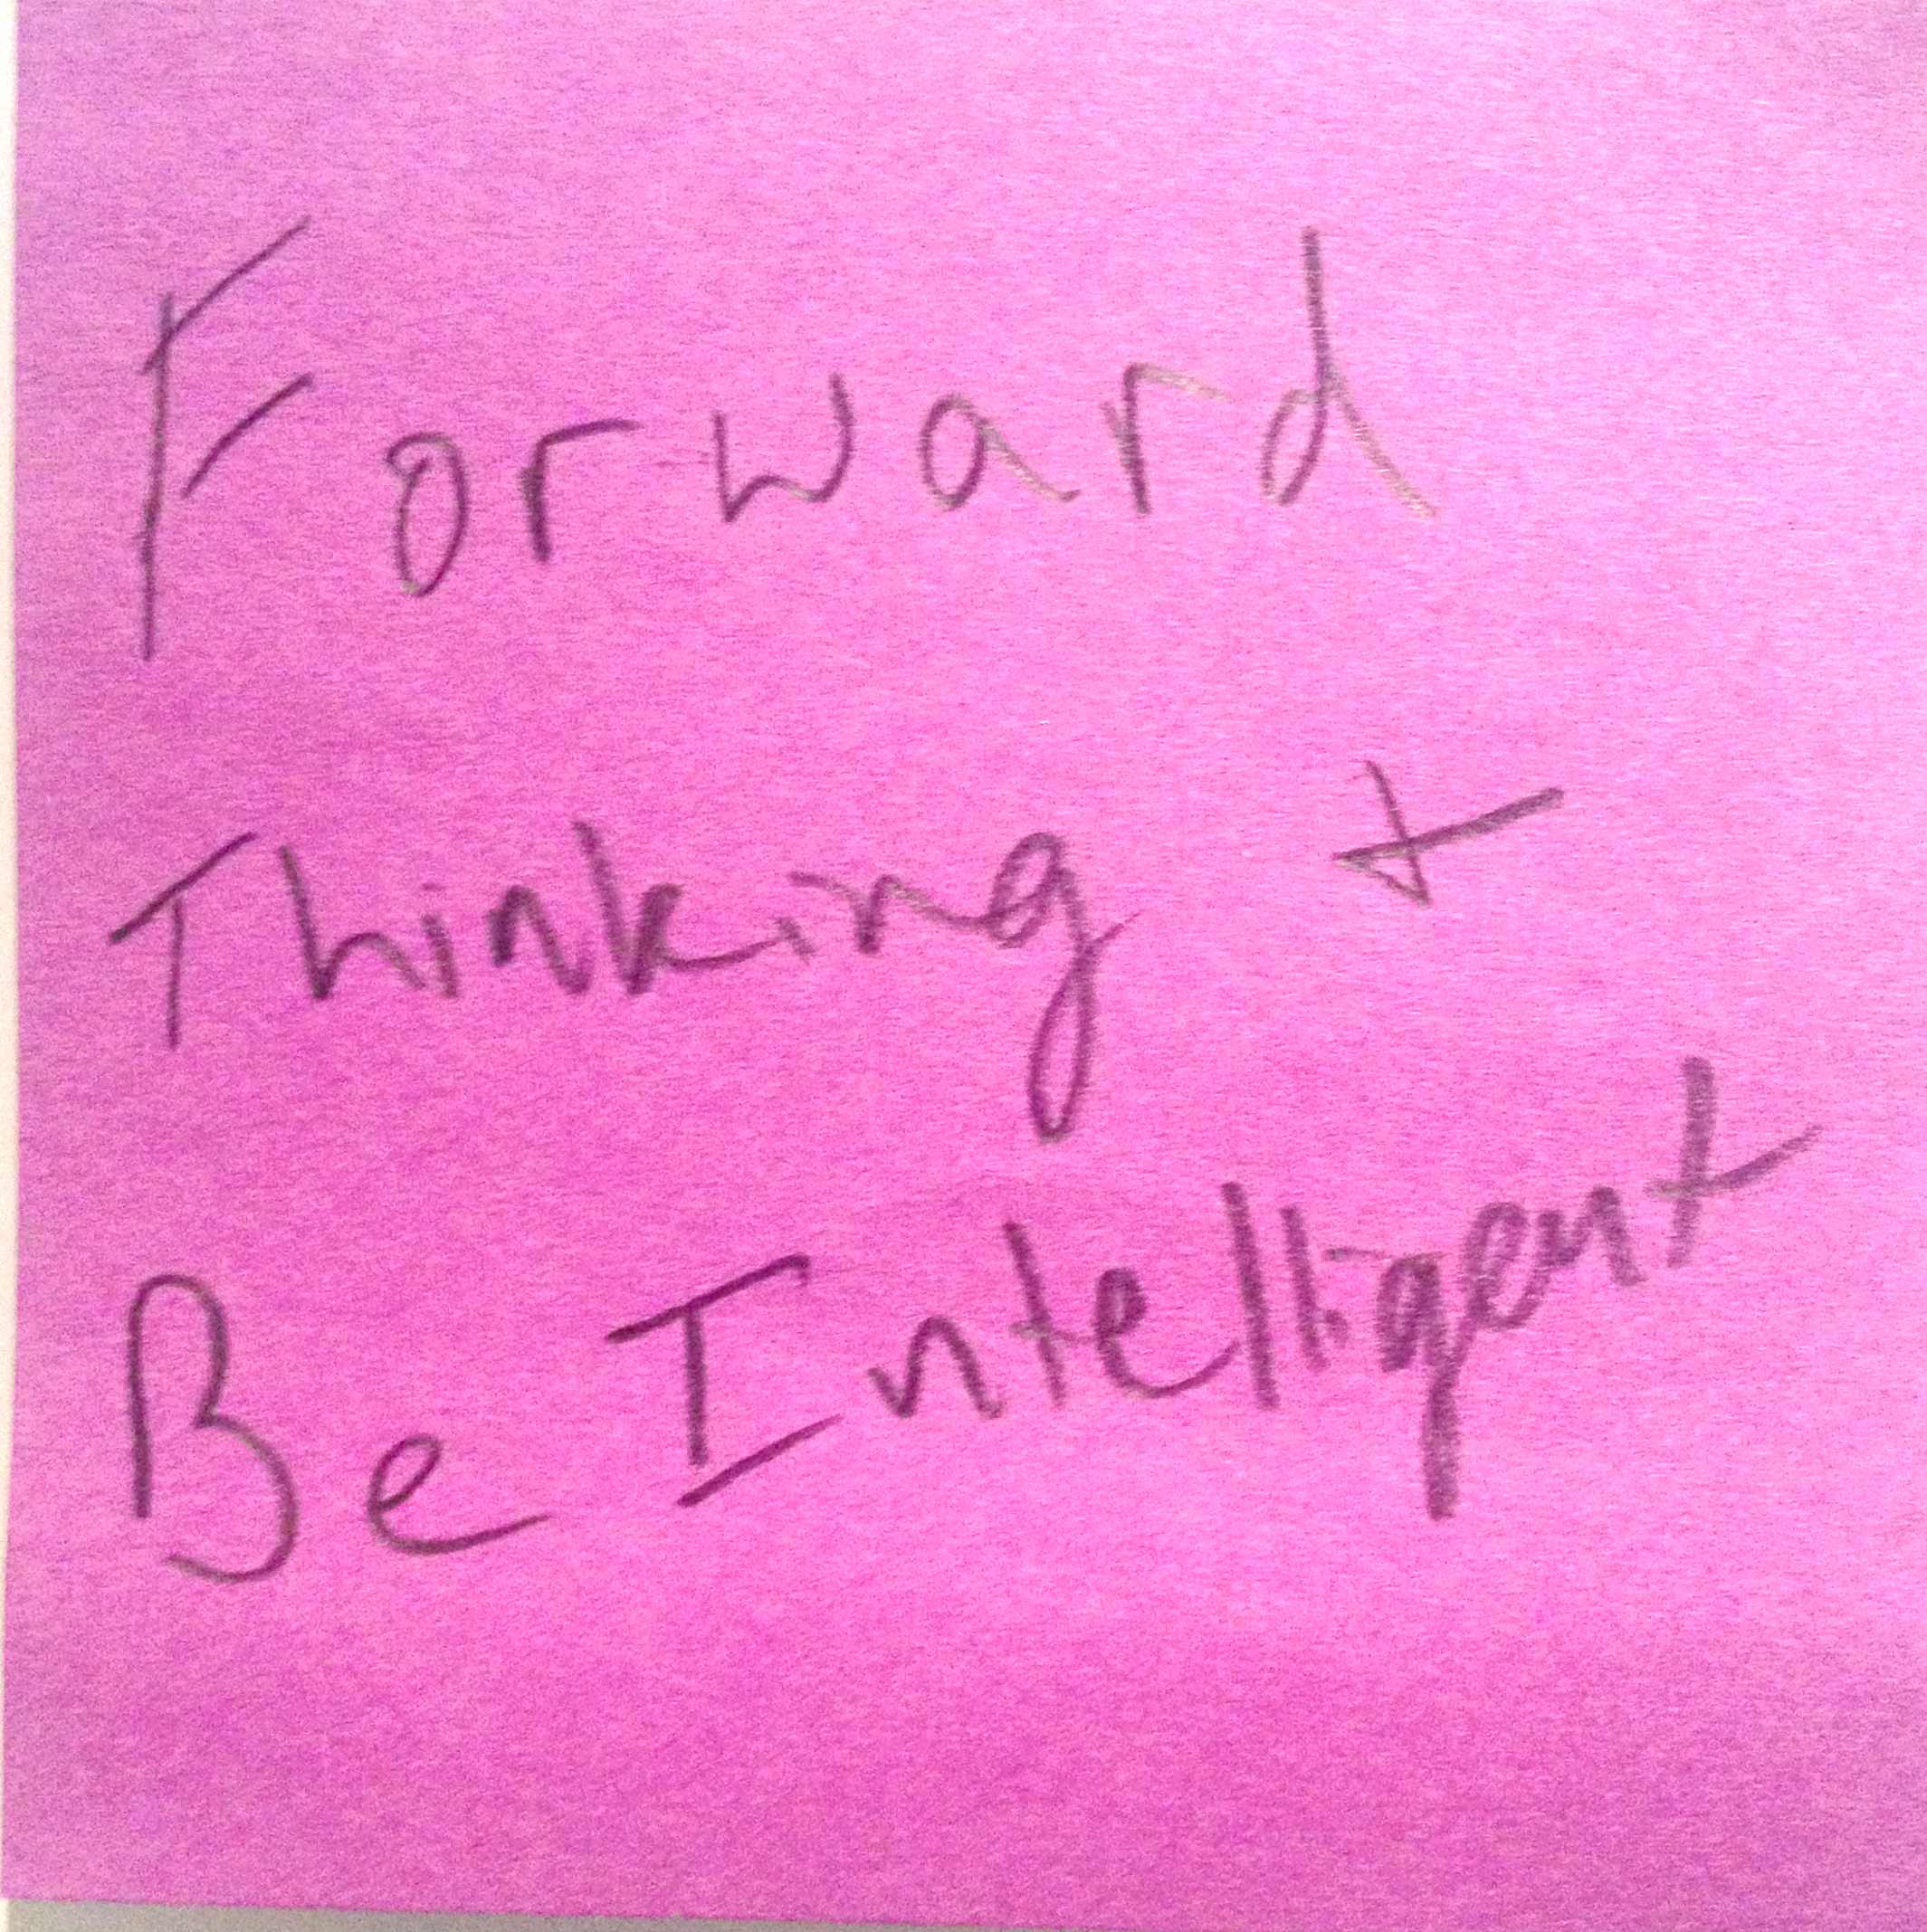 Forward
Thinking +
Be Intelligent